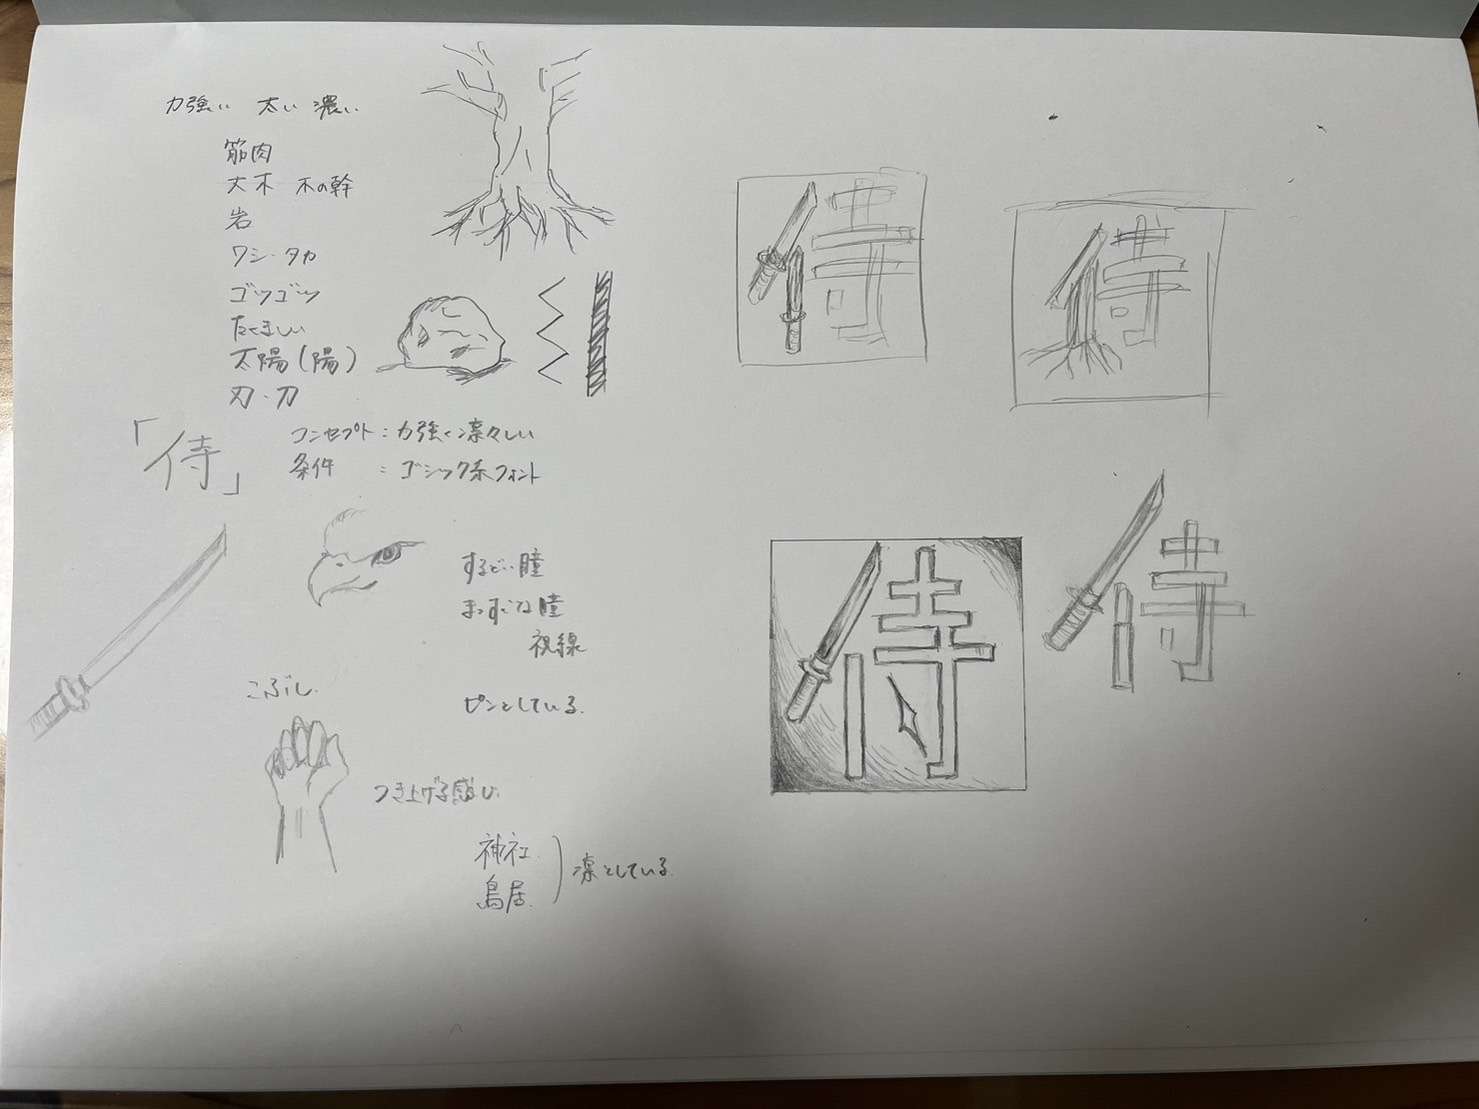 力強い 太い 濃い
筋肉
大木 木の幹
岩
ワシ・タカ
ゴツゴツ
たくましい
太陽(陽)
刃・刀
「侍」
コンセプト:力強く凛々しい
条件 :ゴシック系フォント
するどい瞳
まっすぐな瞳
視線
ピンとしている.
こぶし.
つき上げる感じ.
神社.
鳥居.
凛としている.
侍
侍
侍
侍